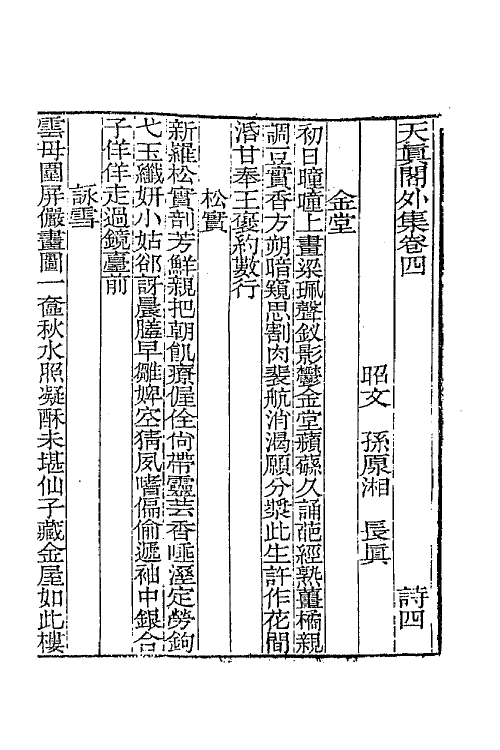 天眞閣外集卷四　　　　詩四
昭文　孫原湘　長眞
金堂
初日曈曈上畫梁珮聲釵影鬱金堂蘋蘩久誦葩經熟薑橘親
調豆實香方朔暗窺思割肉裴航消渴願分漿此生許作花間
酒甘奉王褒約數行
松實
新羅松實剖芳鮮親把朝飢療偓佺尙帶靈芸香唾溼定勞鉤
弋玉纖姸小姑郤訝晨膳早雛婢空猜夙嗜偏偷遞袖中銀合
子佯佯走過鏡臺前
詠雪
雲母圍屏儼畫圖一奩秋水照凝酥未堪仙子藏金屋如此樓